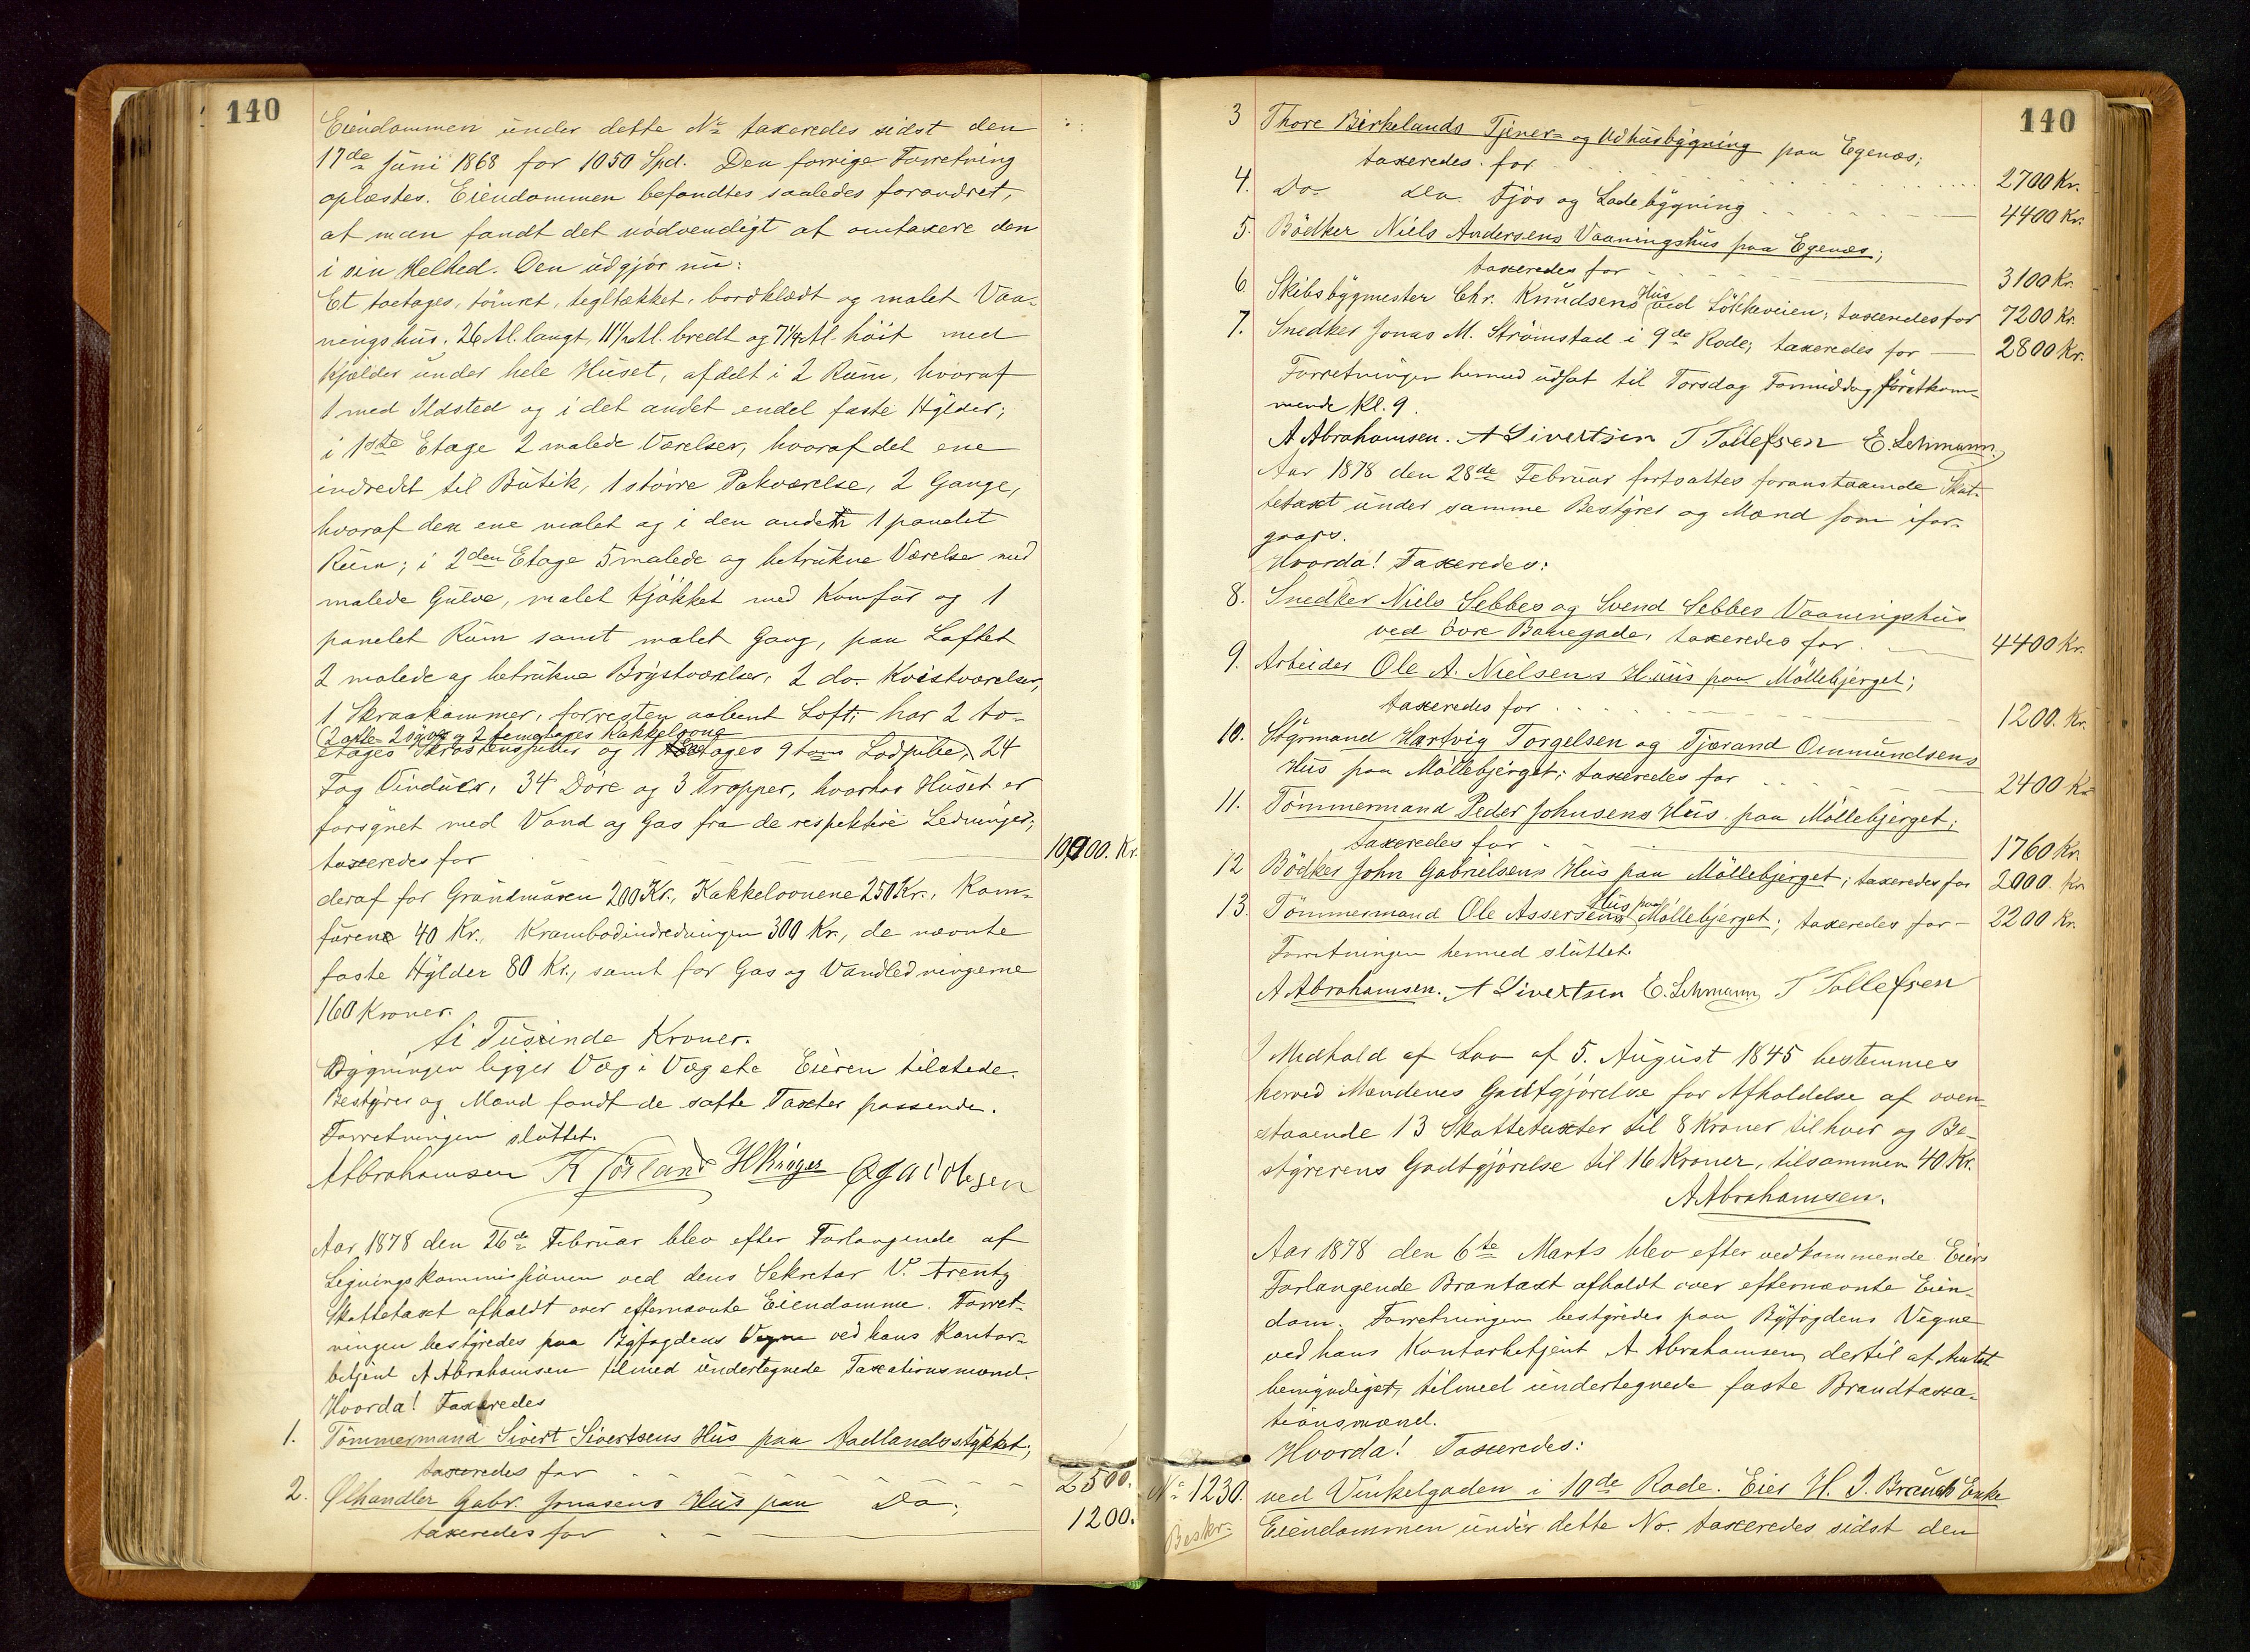 140
Eiendommen under dette No taxeredes sidst den
17de Juni 1868 for 1050 Spd. Den forrige Forretning
oplæstes. Eiendommen befandtes saaledes forandret,
at man fandt det nödvendigt at omtaxere den
i sin Helhed. Den udgjör nu:
Et toetages, tömret, tegltækket, bordklædt og malet Vaa-
ningshus, 26 Al. langt, 11 1/2 Al. bredt og 7 1/4 Al. höit med
Kjælder under hele Huset, afdelt i 2 Rum, hvoraf
1 med Ildsted og i det andet endel faste Hylder;
i 1ste Etage 2 malede Værelser, hvoraf det ene
indredet til Butik, 1 större Pakværelse, 2 Gange,
hvoraf den ene malet og i den anden 1 panelet
Rum; i 2den Etage 5 malede og betrukne Værelser med
malede Gulve, malet Kjökken med Komfur og 1
panelet Rum samt malet Gang, paa Loftet
2 malede og betrukne Brystværelser, 2 do. Kvistværelser,
1 Skraakammer, forresten aabent Loft; har 2 to-
2 2 og 2 Kakkelovne
etages og 1 etages 9 toms Lodpibe, 24
Fag Vinduer, 34 Döre og 3 Trapper, hvorhos Huset er
forsynet med Vand og Gas fra de respektive Ledninger;
taxeredes for 10,000. Kr.
deraf for Grundmuren 200 Kr., Kakkelovnene 250 Kr., Kom-
furene 40 Kr., Krambodindredningen 300 Kr., de nævnte
faste Hylder 80 Kr., samt for Gas og Vandledningerne
160 Kroner.
ti Tusinde Kroner.
Bygningen ligger Væg i Væg etc Eieren tilstede.
Bestyrer og Mænd fandt de satte Taxter passende.
Forretningen sluttet.
A Abrahamsen K Jörland H Ringer O Jacobsen
Aar 1878 den 26de Februar blev efter Forlangende af
Ligningskommissionen ved dens Sekretær V. Arentz
Skattetaxt afholdt over efternævnte Eiendomme. Forret-
ningen bestyredes paa Byfogdens Vegne ved hans Kontor-
betjent A Abrahamsen tilmed undertegnede Taxationsmænd.
Hvorda! Taxeredes
1. Tömmermand Sivert Sivertsens Hus paa Aadlandsstykket;
taxeredes for 2500.
2. Ølhandler Gabr. Jonasens Hus paa Do;
taxeredes for 1200.
140
3 Thore Birkelands Tjener- og Udhusbygning paa Egenæs;
taxeredes for 2700 Kr.
4. Do do Fjös og Ladebygning 4400 Kr.
5. Bödker Niels Andersens Vaaningshus paa Egenæs;
taxeredes for 3100 Kr.
6 Skibsbygmester Chr. Knudsens Hus ved Lökkeveien; taxeredes for 7200 Kr.
7. Snedker Jonas M. Strömstad i 9de Rode; taxeredes for 2800 Kr.
Forretningen hermed udsat til Torsdag Formiddag förstkom-
mende Kl. 9.
A Abrahamsen. A Sivertsen T Tollefsen E. Lehmann.
Aar 1878 den 28de Februar fortsattes foranstaaende Skat-
tetaxt under samme Bestyrer og Mænd som ifor-
gaars.
Hvorda! Taxeredes:
8. Snedker Niels Sebbes og Svend Sebbes Vaaningshus
ved övre Banegade, taxeredes for 4400 Kr.
9. Arbeider Ole A. Nielsens Huus paa Möllebjerget;
taxeredes for 1200. Kr.
10. Styrmand Hartvig Torgelsen og Tjærand Ommundsens
Hus paa Möllebjerget; taxeredes for 2400 Kr
11. Tömmermand Peder Johnsens Hus paa Möllebjerget;
taxeredes for 1760 Kr.
12 Bödker John Gabrielsens Hus paa Möllebjerget; taxeredes for 2000. Kr
13. Tömmermand Ole Assersens Hus paa Möllebjerget; taxeredes for 2200 Kr.
Forretningen hermed sluttet.
A Abrahamsen. A Sivertsen E. Lehmann T Tollefsen
I Medhold af Lov af 5. August 1845 bestemmes
herved Mændenes Godtgjörelse for Afholdelse af oven-
staaende 13 Skattetaxter til 8 Kroner til hver og Be-
styrerens Godtgjörelse til 16 Kroner, tilsammen 40 Kr.
A Abrahamsen.
Aar 1878 den 6te Marts blev efter vedkommende Eiers
Forlangende Brantaxt afholdt over efternævnte Eien-
dom. Forretningen bestyredes paa Byfogdens Vegne
ved hans Kontorbetjent A. Abrahamsen, dertil af Amtet
bemyndiget, tilmed undertegnede faste Brandtaxa-
tionsmænd.
Hvorda! Taxeredes:
No 1230. ved Vinkelgaden i 10de Rode. Eier H. J. Brauds Enke
Beskr. Eiendommen under dette No. taxeredes sidst den